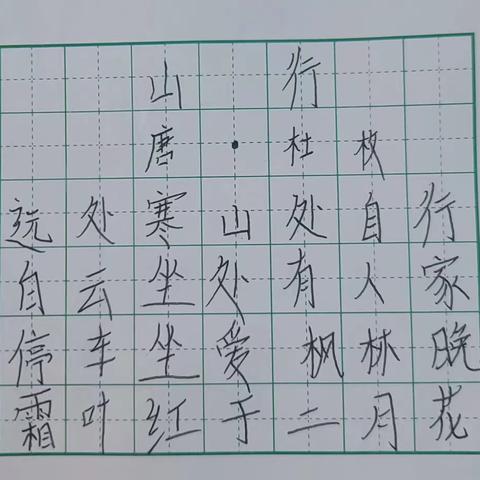 山行
唐·杜枚
远处寒山处自行
自云坐处有人家
停车坐爱枫林晚
霜叶红于二月花